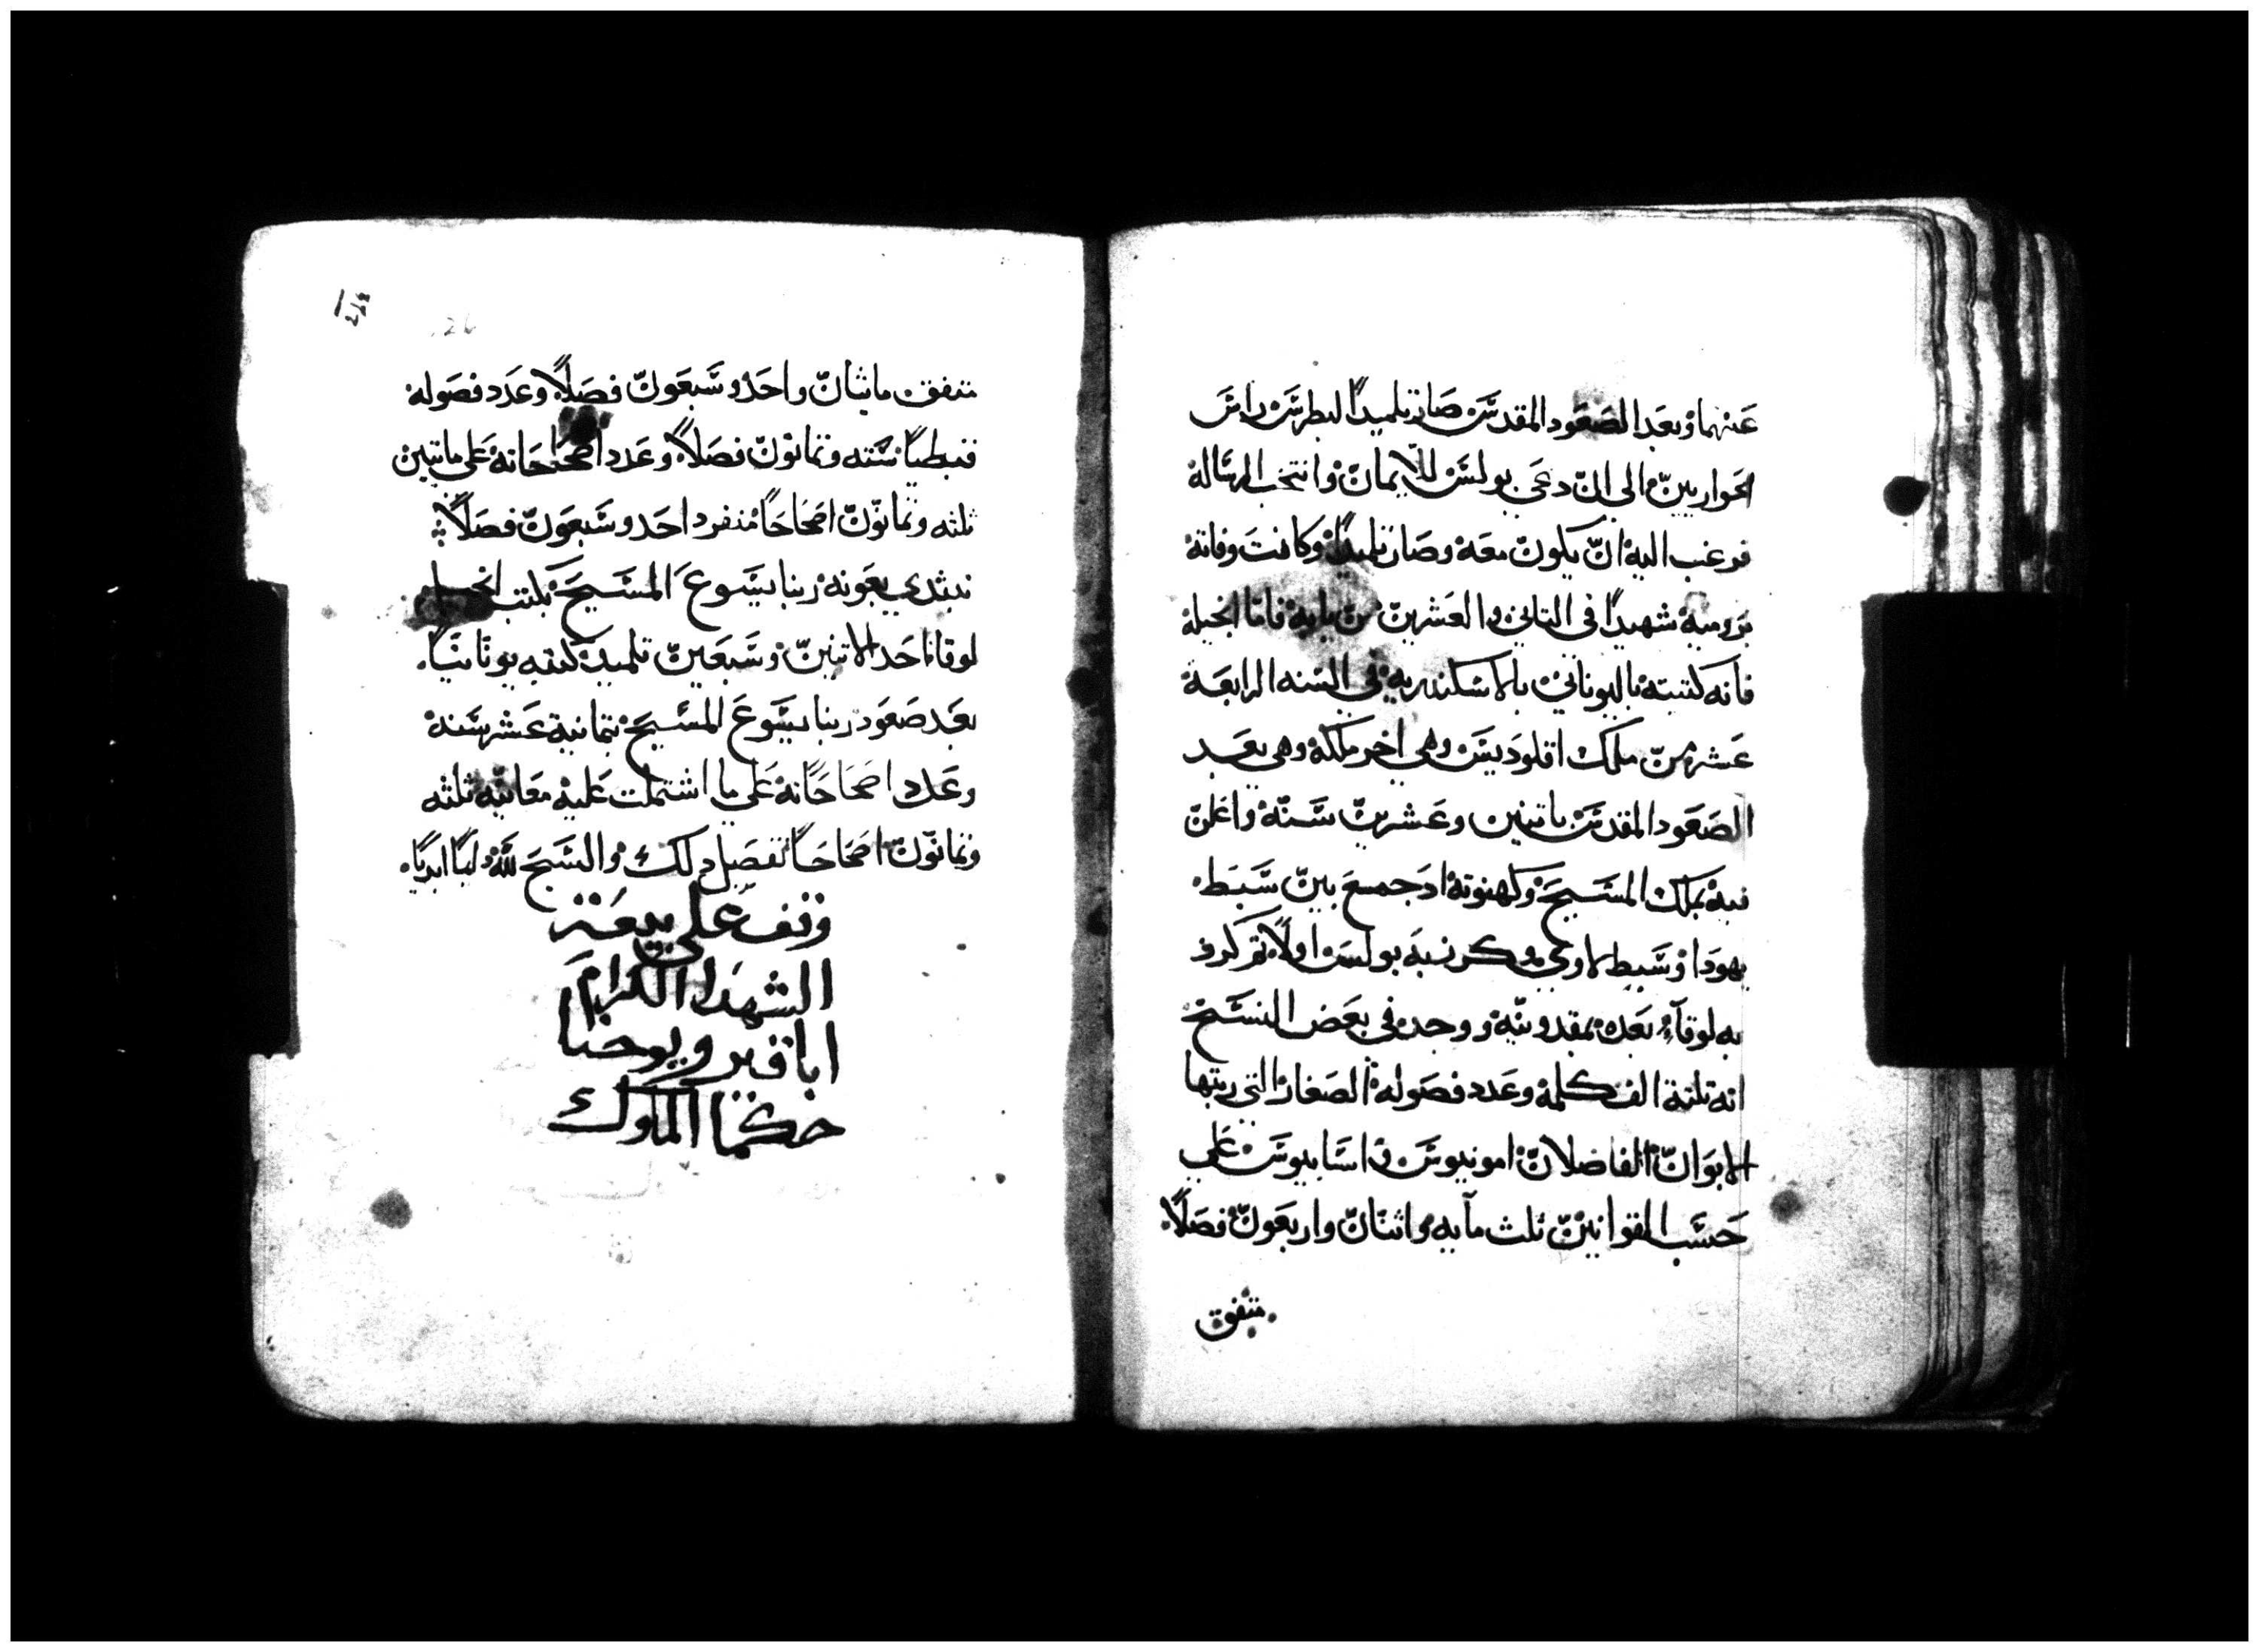 عنهما وبعد الصعود المقدس صار تلميدًا لبطرس راس
الحواريين الى ان دعي بولس للايمان وانتخب الرساله
فرغب اليه ان يكون معه وصار تلميدًا وكانت وفاته
بروميه شهيدًا في التاني والعشرين من بابه فاما انجيله
فانه كتبته باليوناني بالاسكندريه في السنه الرابعه
عشر من ملك اقلوديس وهي اخر ملكه وهي بعد
الصعود المقدس باتنين وعشرين سنه واعلن
فيه بملك المسيح وكهنوته اد جمع بين سبط
يهودا وسبط لاوي بولس اولًا تم كرز
به لوقاء بعده بمقدونيه ووجد في بعض النسخ
انه تلتة الف كلمه وعدد فصوله الصغار التي رتبها
الابوان الفاضلان امونيوس واسابيوس علي
حسب القوانين ثلث مآيه واثنان واربعون فصلًا
متفق
متفق مايثان واحد وسبعون فصلًا وعدد فصوله
قبطيًا سته وتمانون فصلًا وعدد اصحاحاته على ماتبين
ثلثه وتمانون اصحاحًا منفرد احد وسبعون فصلًا
نبتدي بعونة ربنا يسوع المسيح بكتب انجيل
لوقا احد الاتنين وسبعين تلميد كتبه يونانيًا
بعد صعود ربنا يسوع المسيح بتمانية عشر سنه
وعدد اصحاحاته علي ما اشتملت عليه معانيه ثلثه
وتمانون اصحاحًا تفصيل دلك والسبح لله دايمًا ابديًا
وقف علي بيعة
الشهدا الكرام
اباقير ويوحنا
بحكما الملوك